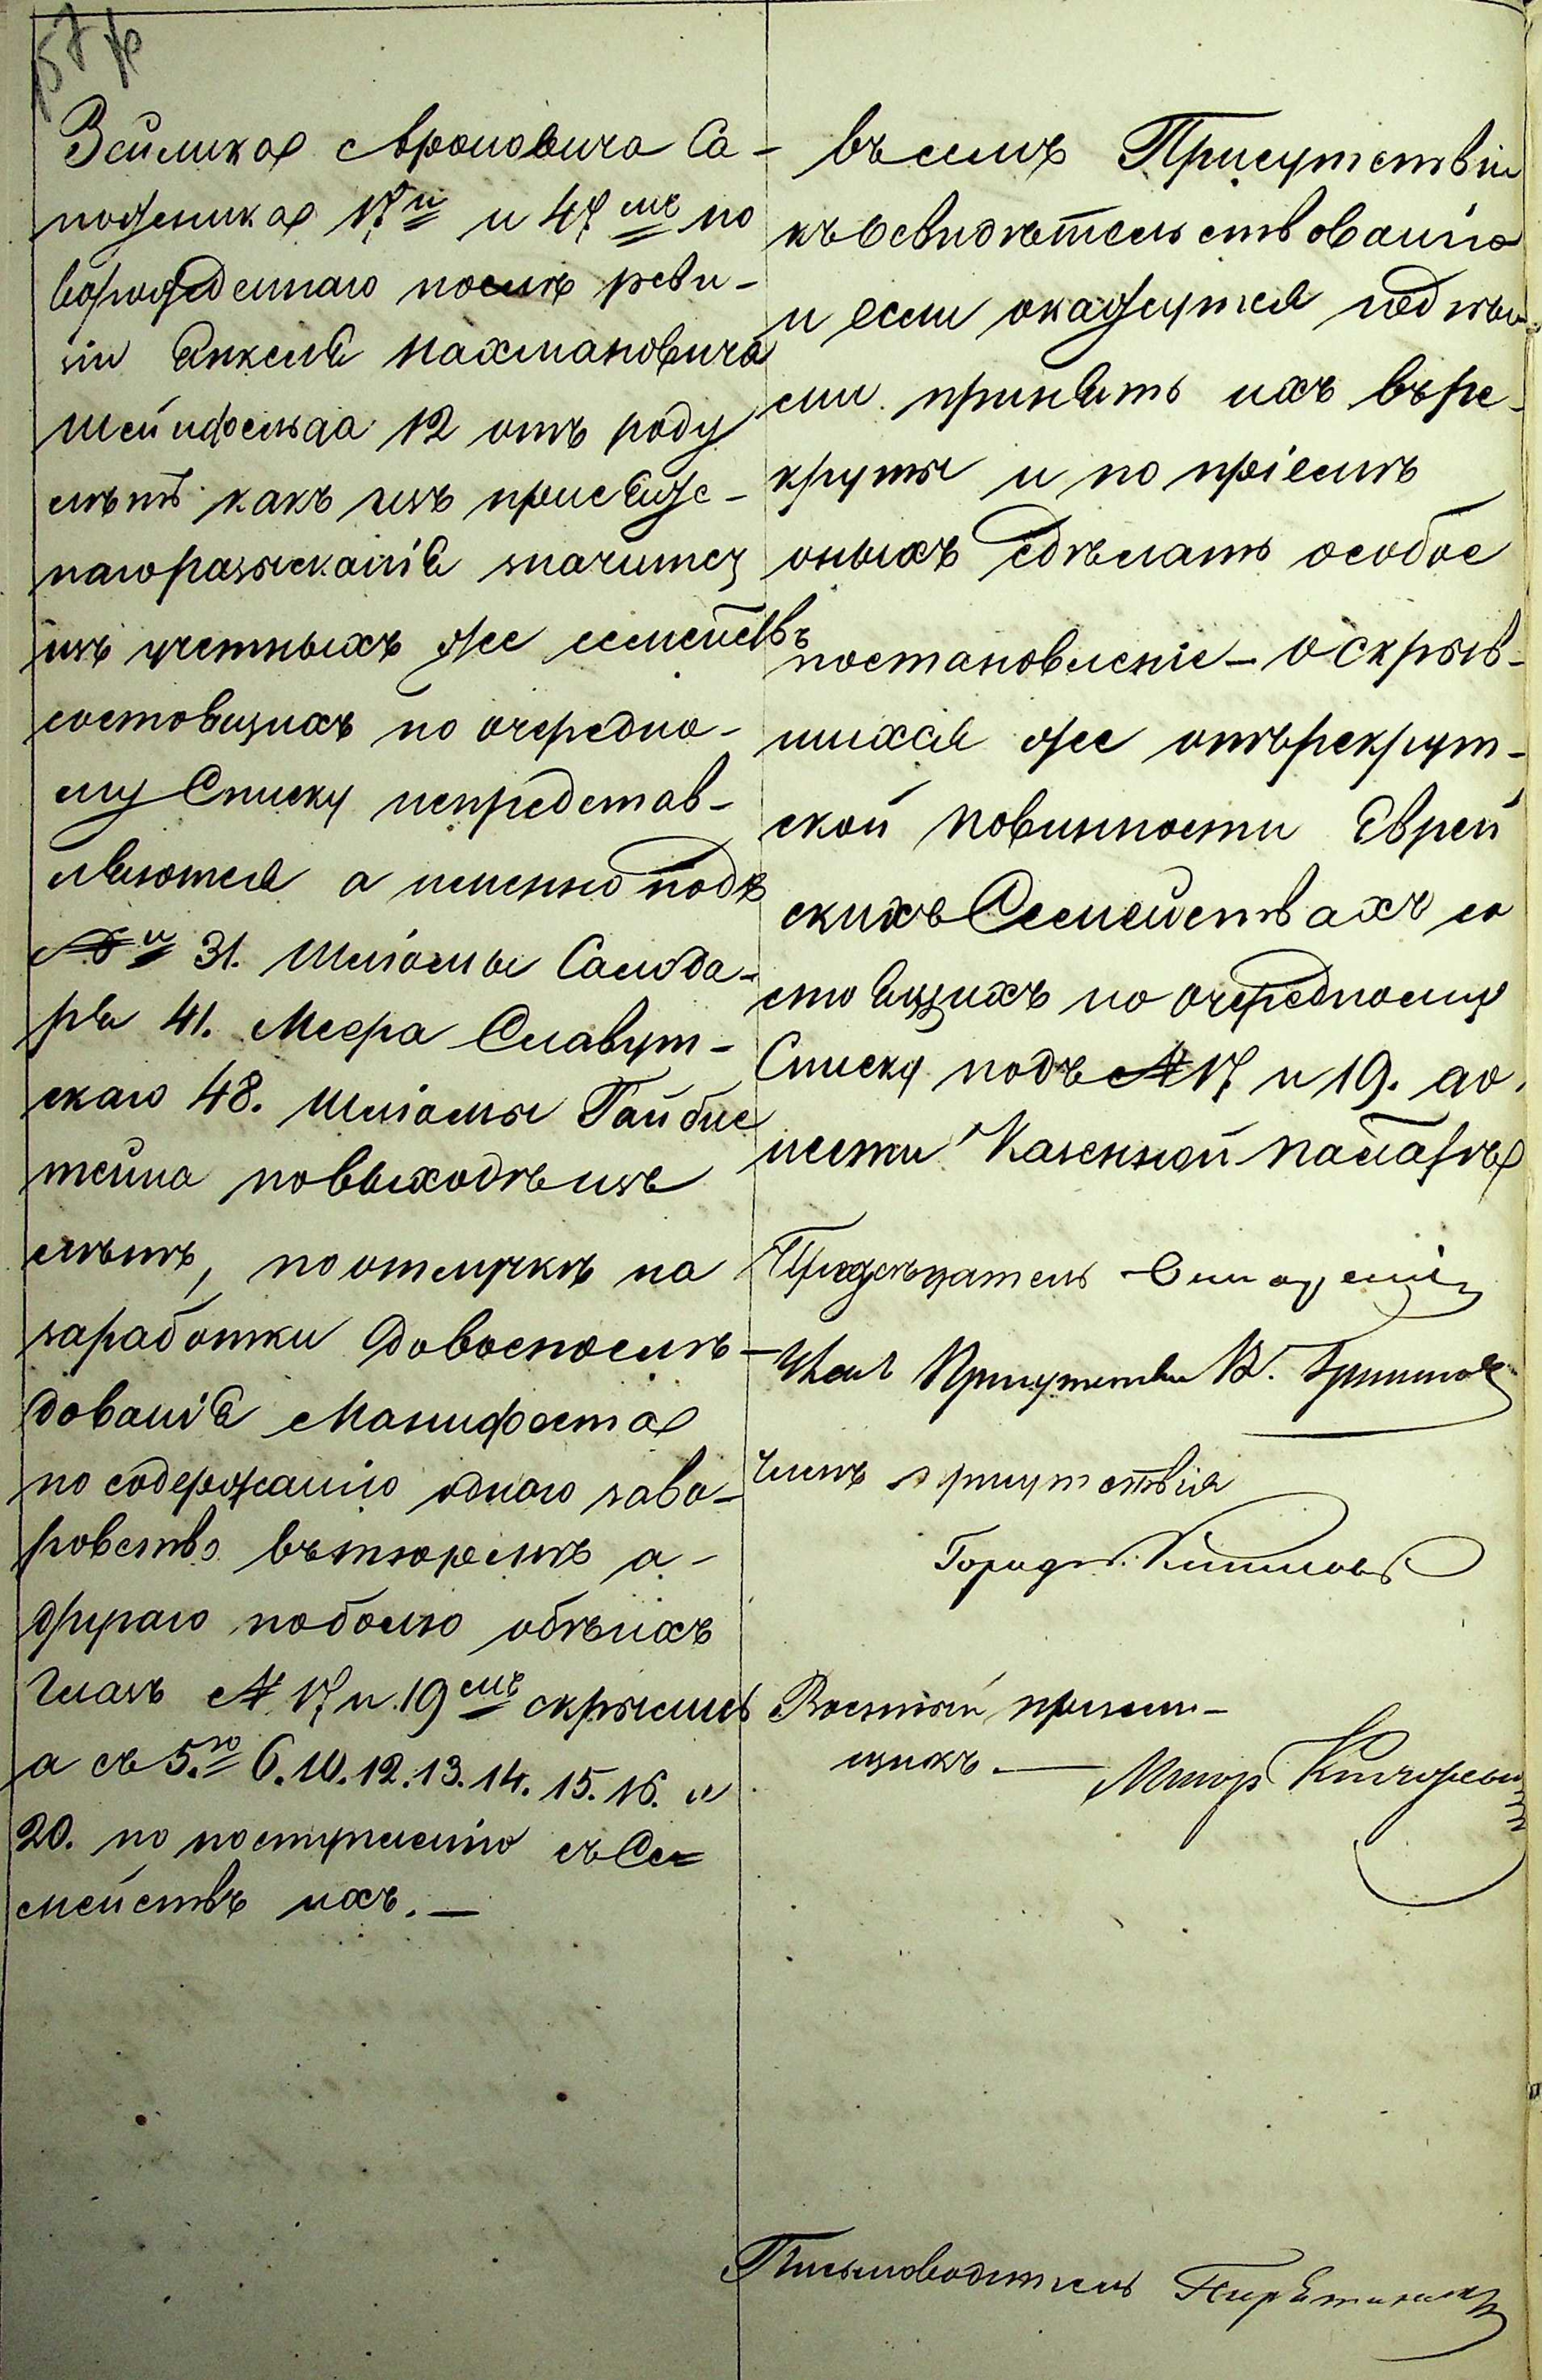 Зейлика Ароновича Са-
пожника 17и и 47мъ по
ворожденнаго послѣ реви-
зіи Янкеля Нахмановича
Шейнфельда 12 отъ роду
лѣтъ какъ изъ присяж-
нагоразысканія значится
изъ учетныхъ же семействъ
состоящихъ по очередно-
му Списку непредстав-
ляются а именно подъ
№и 31. Шліомы Самода-
ря 41. Меера Славут-
скаго 48. Шліомы Гайбис
тейна повыходѣ изъ
лѣтъ, поотлучкѣ на
заработки довоспослѣ-
дованія Манифеста
по содержанію однаго заво-
ровство втюрьмѣ а-
другаго поболю обѣихъ
глазъ № 17 и 19мъ скрылись
а съ 5.го 6. 10. 12. 13. 14. 15. 16. и
20. по поступленію съ Се-
мействъ ихъ. —
въ семъ Присутствіи
къ освидѣтельствованію
и если окажутся годны-
ми принять ихъ въре-
круты и по пріемѣ
оныхъ сдѣлать особое
постановленіе — о скрыв-
шихся же отърекрут-
ской повинности Еврей
скихъ Семействахъ со
стоящихъ по очередному
Списку подъ № 17 и 19. до.
нести Казенной палатѣ
Предсѣдатель
Член Присутствія
Членъ присутствія
Военный пріем-
щикъ. — Маіоръ
Письмоводитель